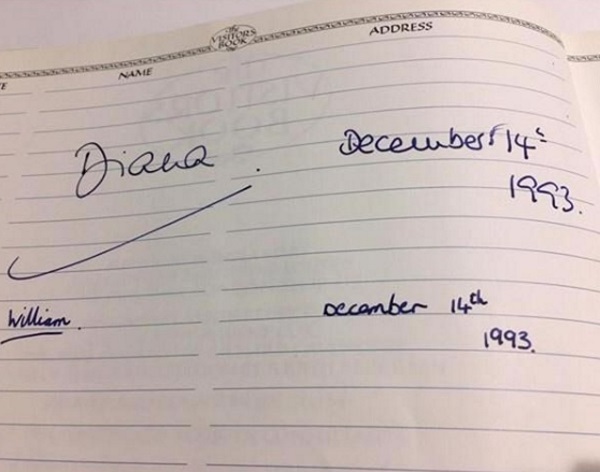 The
VISITORS
BOOK
E NAME ADDRESS
Diana. December 14th
1993.
William. December 14th
1993.